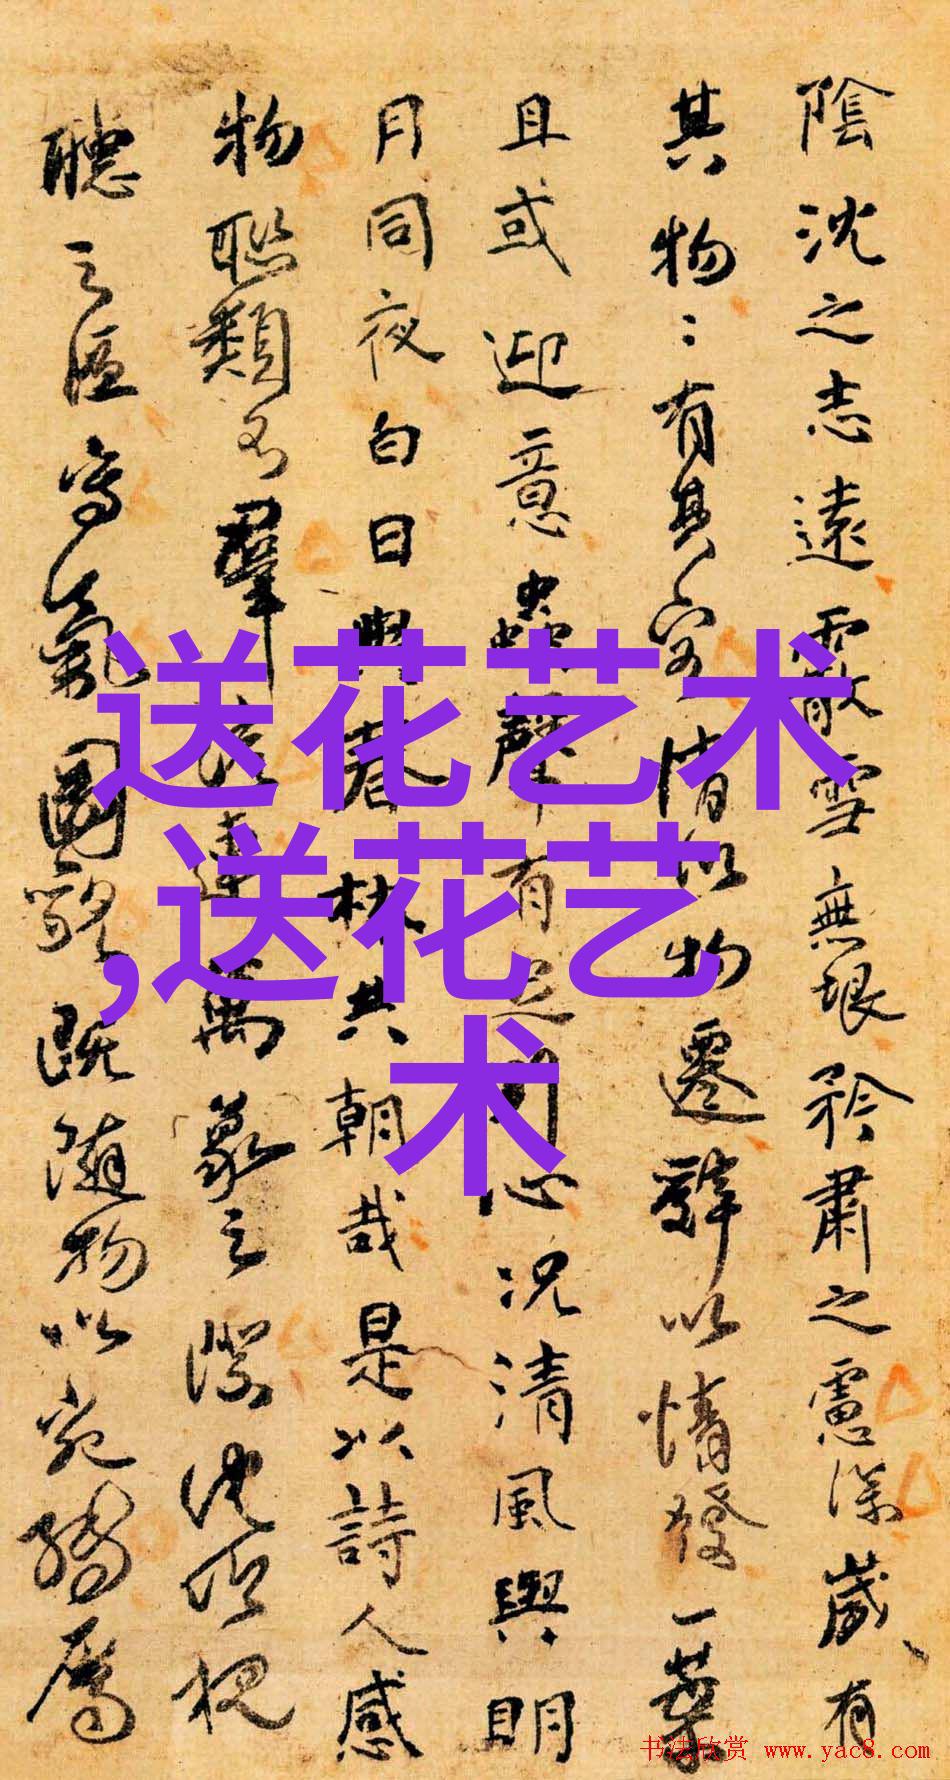 陰沈之志遠霰雪無垠矜肅之慮深歲有
其物〻有其容情以物遷辭以情發一葉
且或迎意蟲聲有足引心況清風與明
月同夜白日與春林共朝哉是以詩人感
物聯類不窮流連萬象之際沈吟視
聽之區寫氣圖貌既隨物以宛轉屬
送花艺术
,送花艺
术
书法欣赏 www.yac8.com